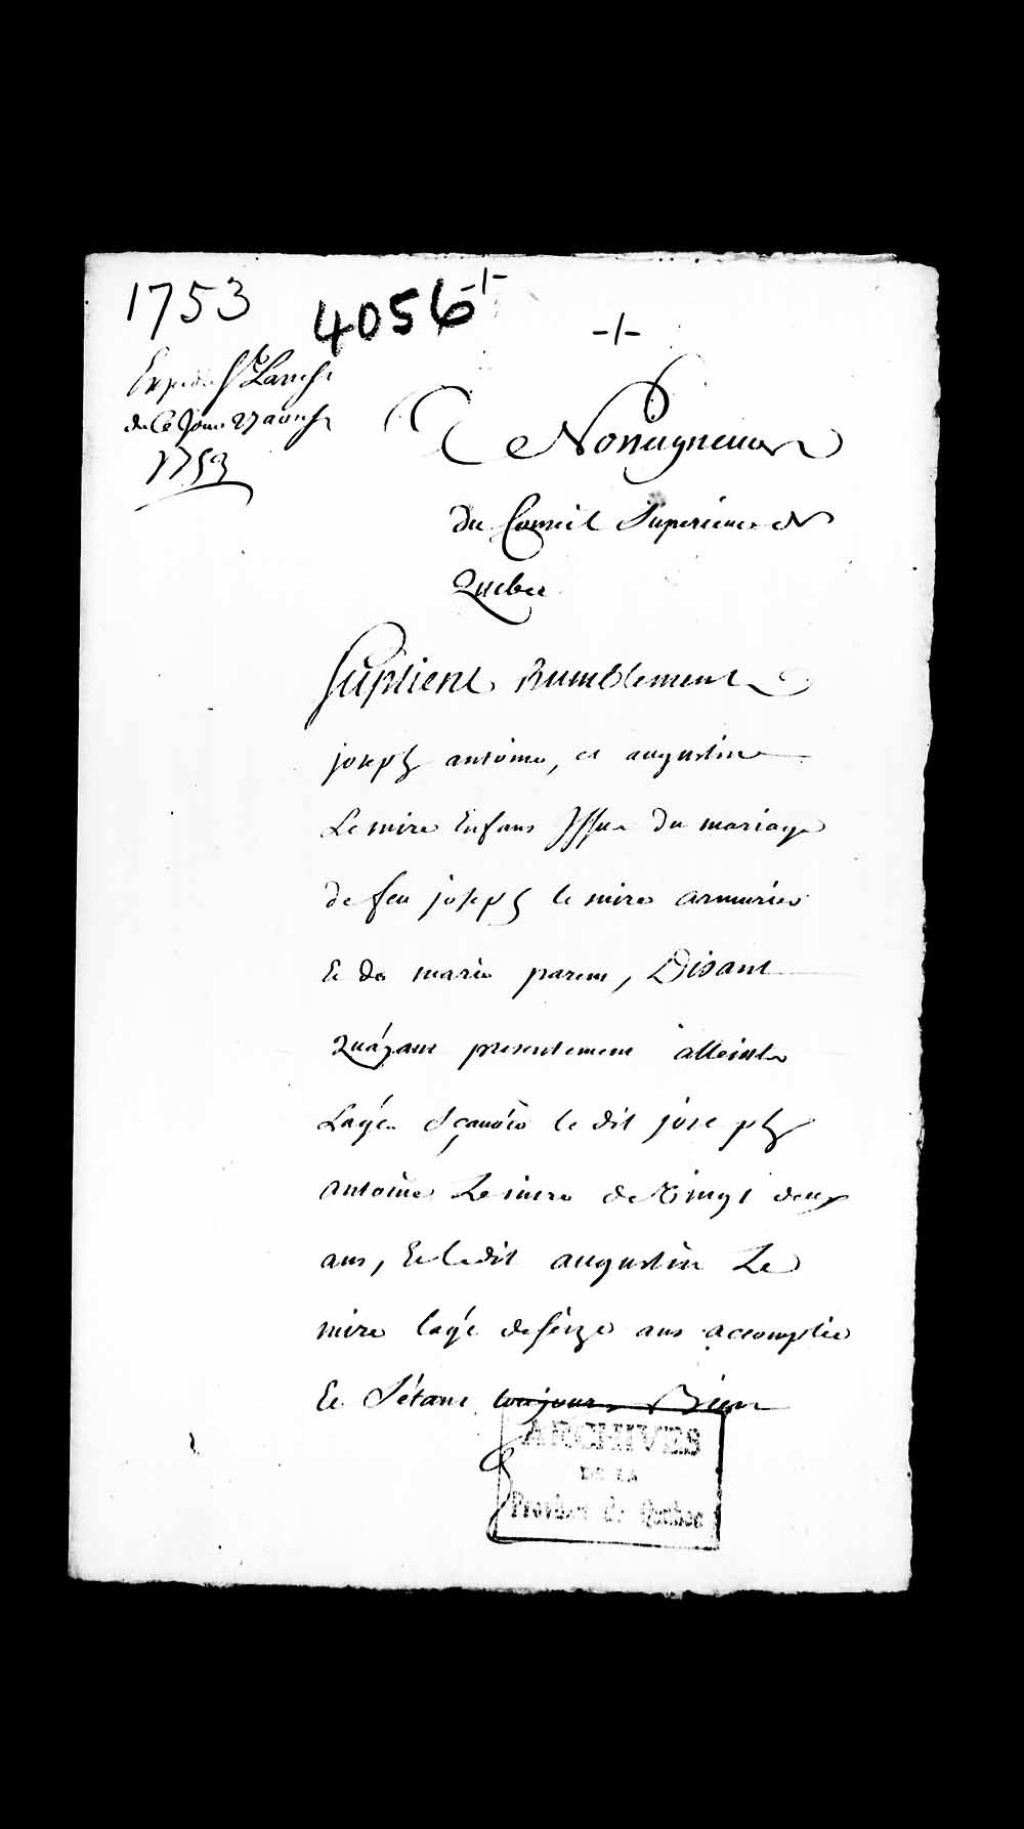 1753
4056 -/-
-/-
de Ce Jour 27 aoust
1753
A Nosseigneurs
Du Conseil Superieur de
Quebec
Suplient humblement
joseph antoine, et augustin
Le mire Enfans Issus Du mariage
De feu joseph le mire armurier
Et De marie parent, Disant
Quáyant presentement atteint
L'agé Sçavoir le dit joseph
antoine Le mire de Vingt deux
ans, Et Ledit augustin Le
mire l'agé de seize ans accomplie
Et S'étant toujours Bien
ARCHIVES
DE LA
Province de Quebec